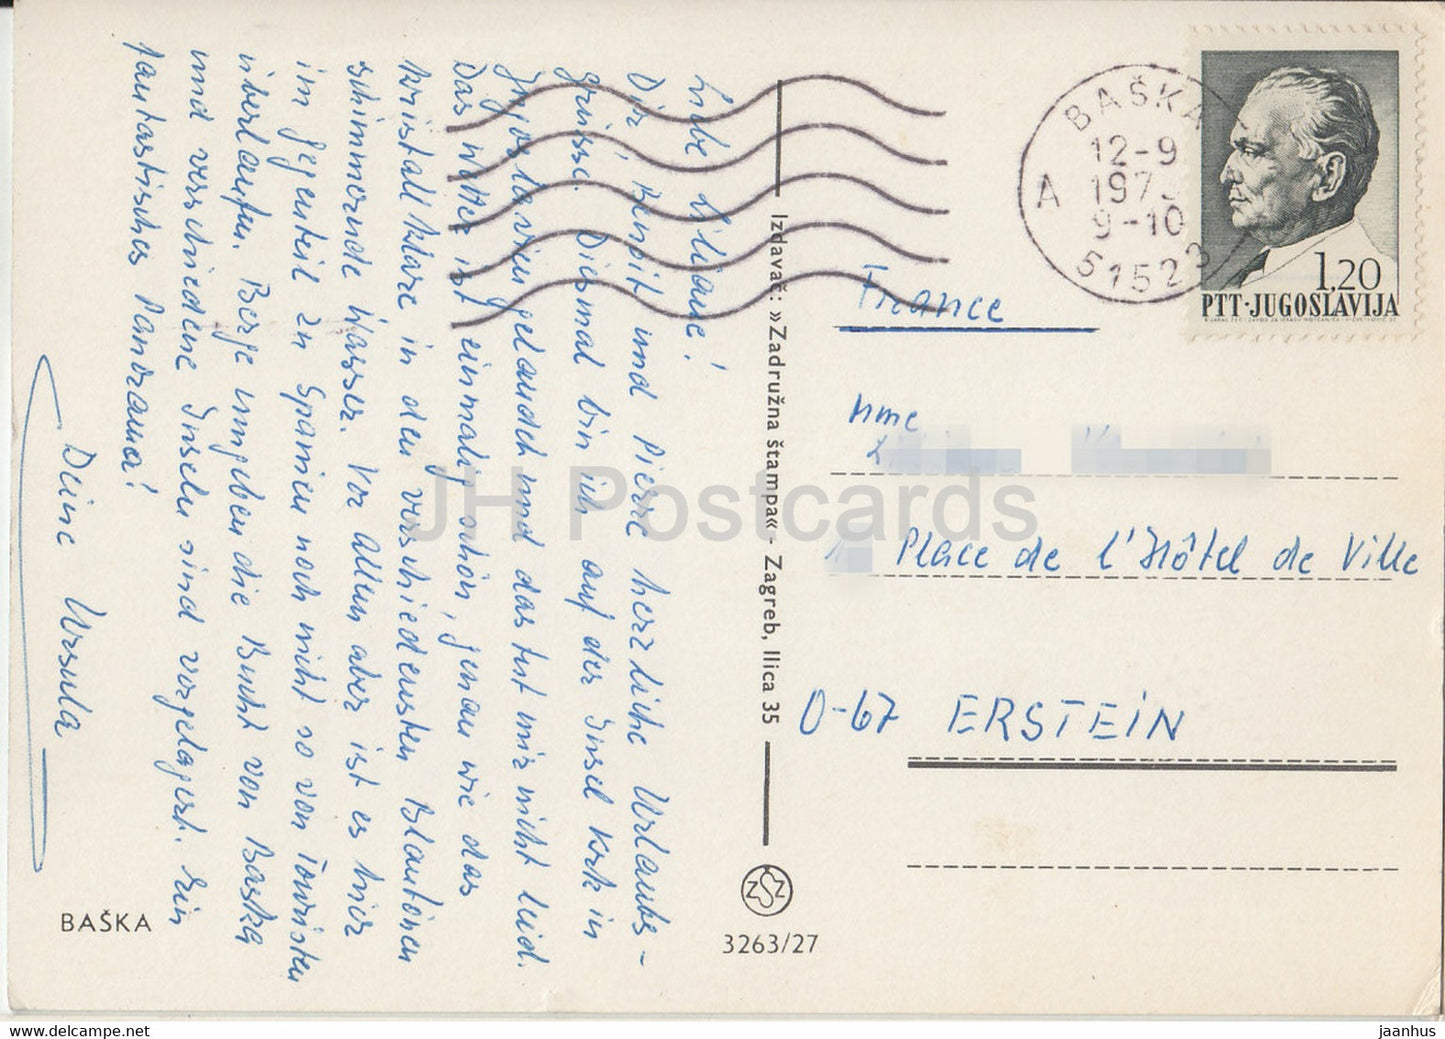 Liebe Liliane!
Dir, Benoit und Pierre herzliche Urlaubs-
grüsse. Diesmal bin ich auf der Insel Krk in
Jugoslavien gelandet und das tut mir nicht leid.
Das Wetter ist einmalig schön, genau wie das
kristallklare in den verschiedensten Blautönen
schimmernde Wasser. Vor allem aber ist es hier
im Gegenteil zu Spanien noch nicht so von Touristen
überlaufen. Berge umgeben die Bucht von Baska
und verschiedene Inseln sind vorgelagert. Ein
fantastisches Panorama!
Deine Ursula
BAŠKA
Izdavač: »Zadružna štampa« - Zagreb, Ilica 35
ZSZ
3263/27
BAŠKA
12-9
A 197
9-10
51523
1,20
PTT·JUGOSLAVIJA
France
Mme
Place de l'Hôtel de Ville
0-67 ERSTEIN
JH Postcards
www.delcampe.net
jaanhus